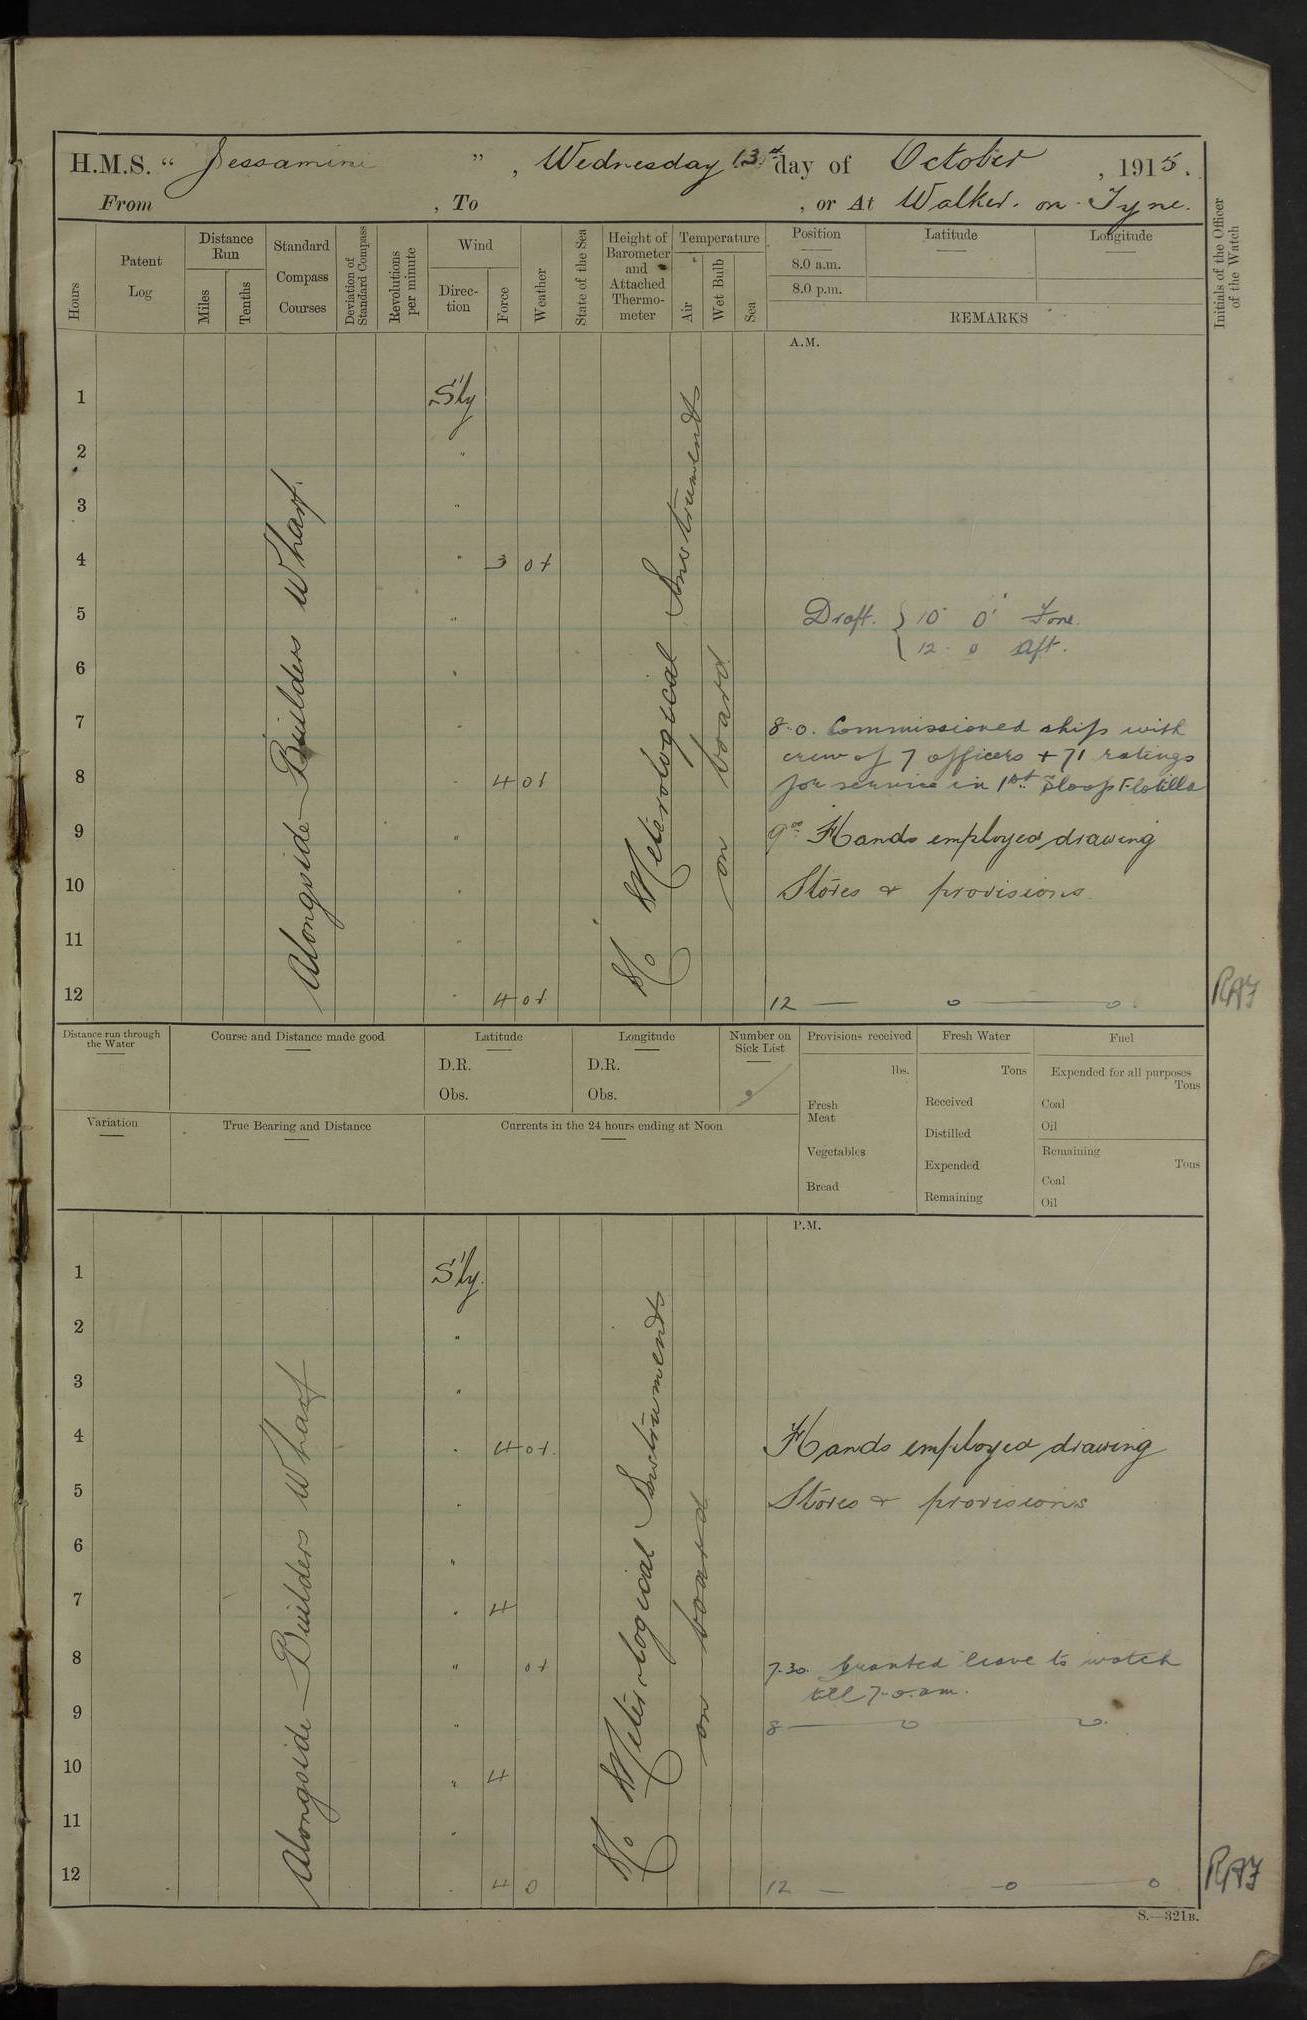 H.M.S. “ Jessamine ” , Wednesday 13th day of October , 1915.
From , To , or At Walker. on. Tyne.
Hours
Patent Log
Distance Run
Miles
Tenths
Standard Compass Courses
Deviation of Standard Compass
Revolutions per minute
Wind
Direc-tion
Force
Weather
State of the Sea
Height of Barometer and Attached Thermo-meter
Temperature
Air
Wet Bulb
Sea
Position
Latitude
Longitude
8.0 a.m.
8.0 p.m.
REMARKS
Initials of the Officer of the Watch
A.M.
1 S'ly
2 "
3 "
4 " 3
5 "
6 "
7 "
8 " 4
9 "
10 "
11 "
12 " 4
Alongside Builders Wharf.
No Meterological Instruments
on board
Draft. { 10' 0" Fore.
12 0 Aft.
8.0. Commissioned ship with
crew of 7 officers + 71 ratings
for service in 1st Sloop Flotilla
9.00 Hands employed drawing
Stores & provisions
12 — o — o.
RAF
Distance run through the Water
Course and Distance made good
Latitude
D.R.
Obs.
Longitude
D.R.
Obs.
Number on Sick List
Provisions received
lbs.
Fresh Meat
Vegetables
Bread
Fresh Water
Tons
Received
Distilled
Expended
Remaining
Fuel
Expended for all purposes
Tons
Coal
Oil
Remaining
Tons
Coal
Oil
Variation
True Bearing and Distance
Currents in the 24 hours ending at Noon
P.M.
1 S'ly.
2 "
3 "
4 " 4
5 "
6 "
7 " 4
8 "
9 "
10 " 4
11 "
12 " 4 0
Alongside Builders Wharf
No Meterological Instruments
on board
Hands employed drawing
Stores & provisions
7.30. Granted leave to watch
till 7-0.am.
8 — o — o.
12 — o — o
RAF
S.—321B.